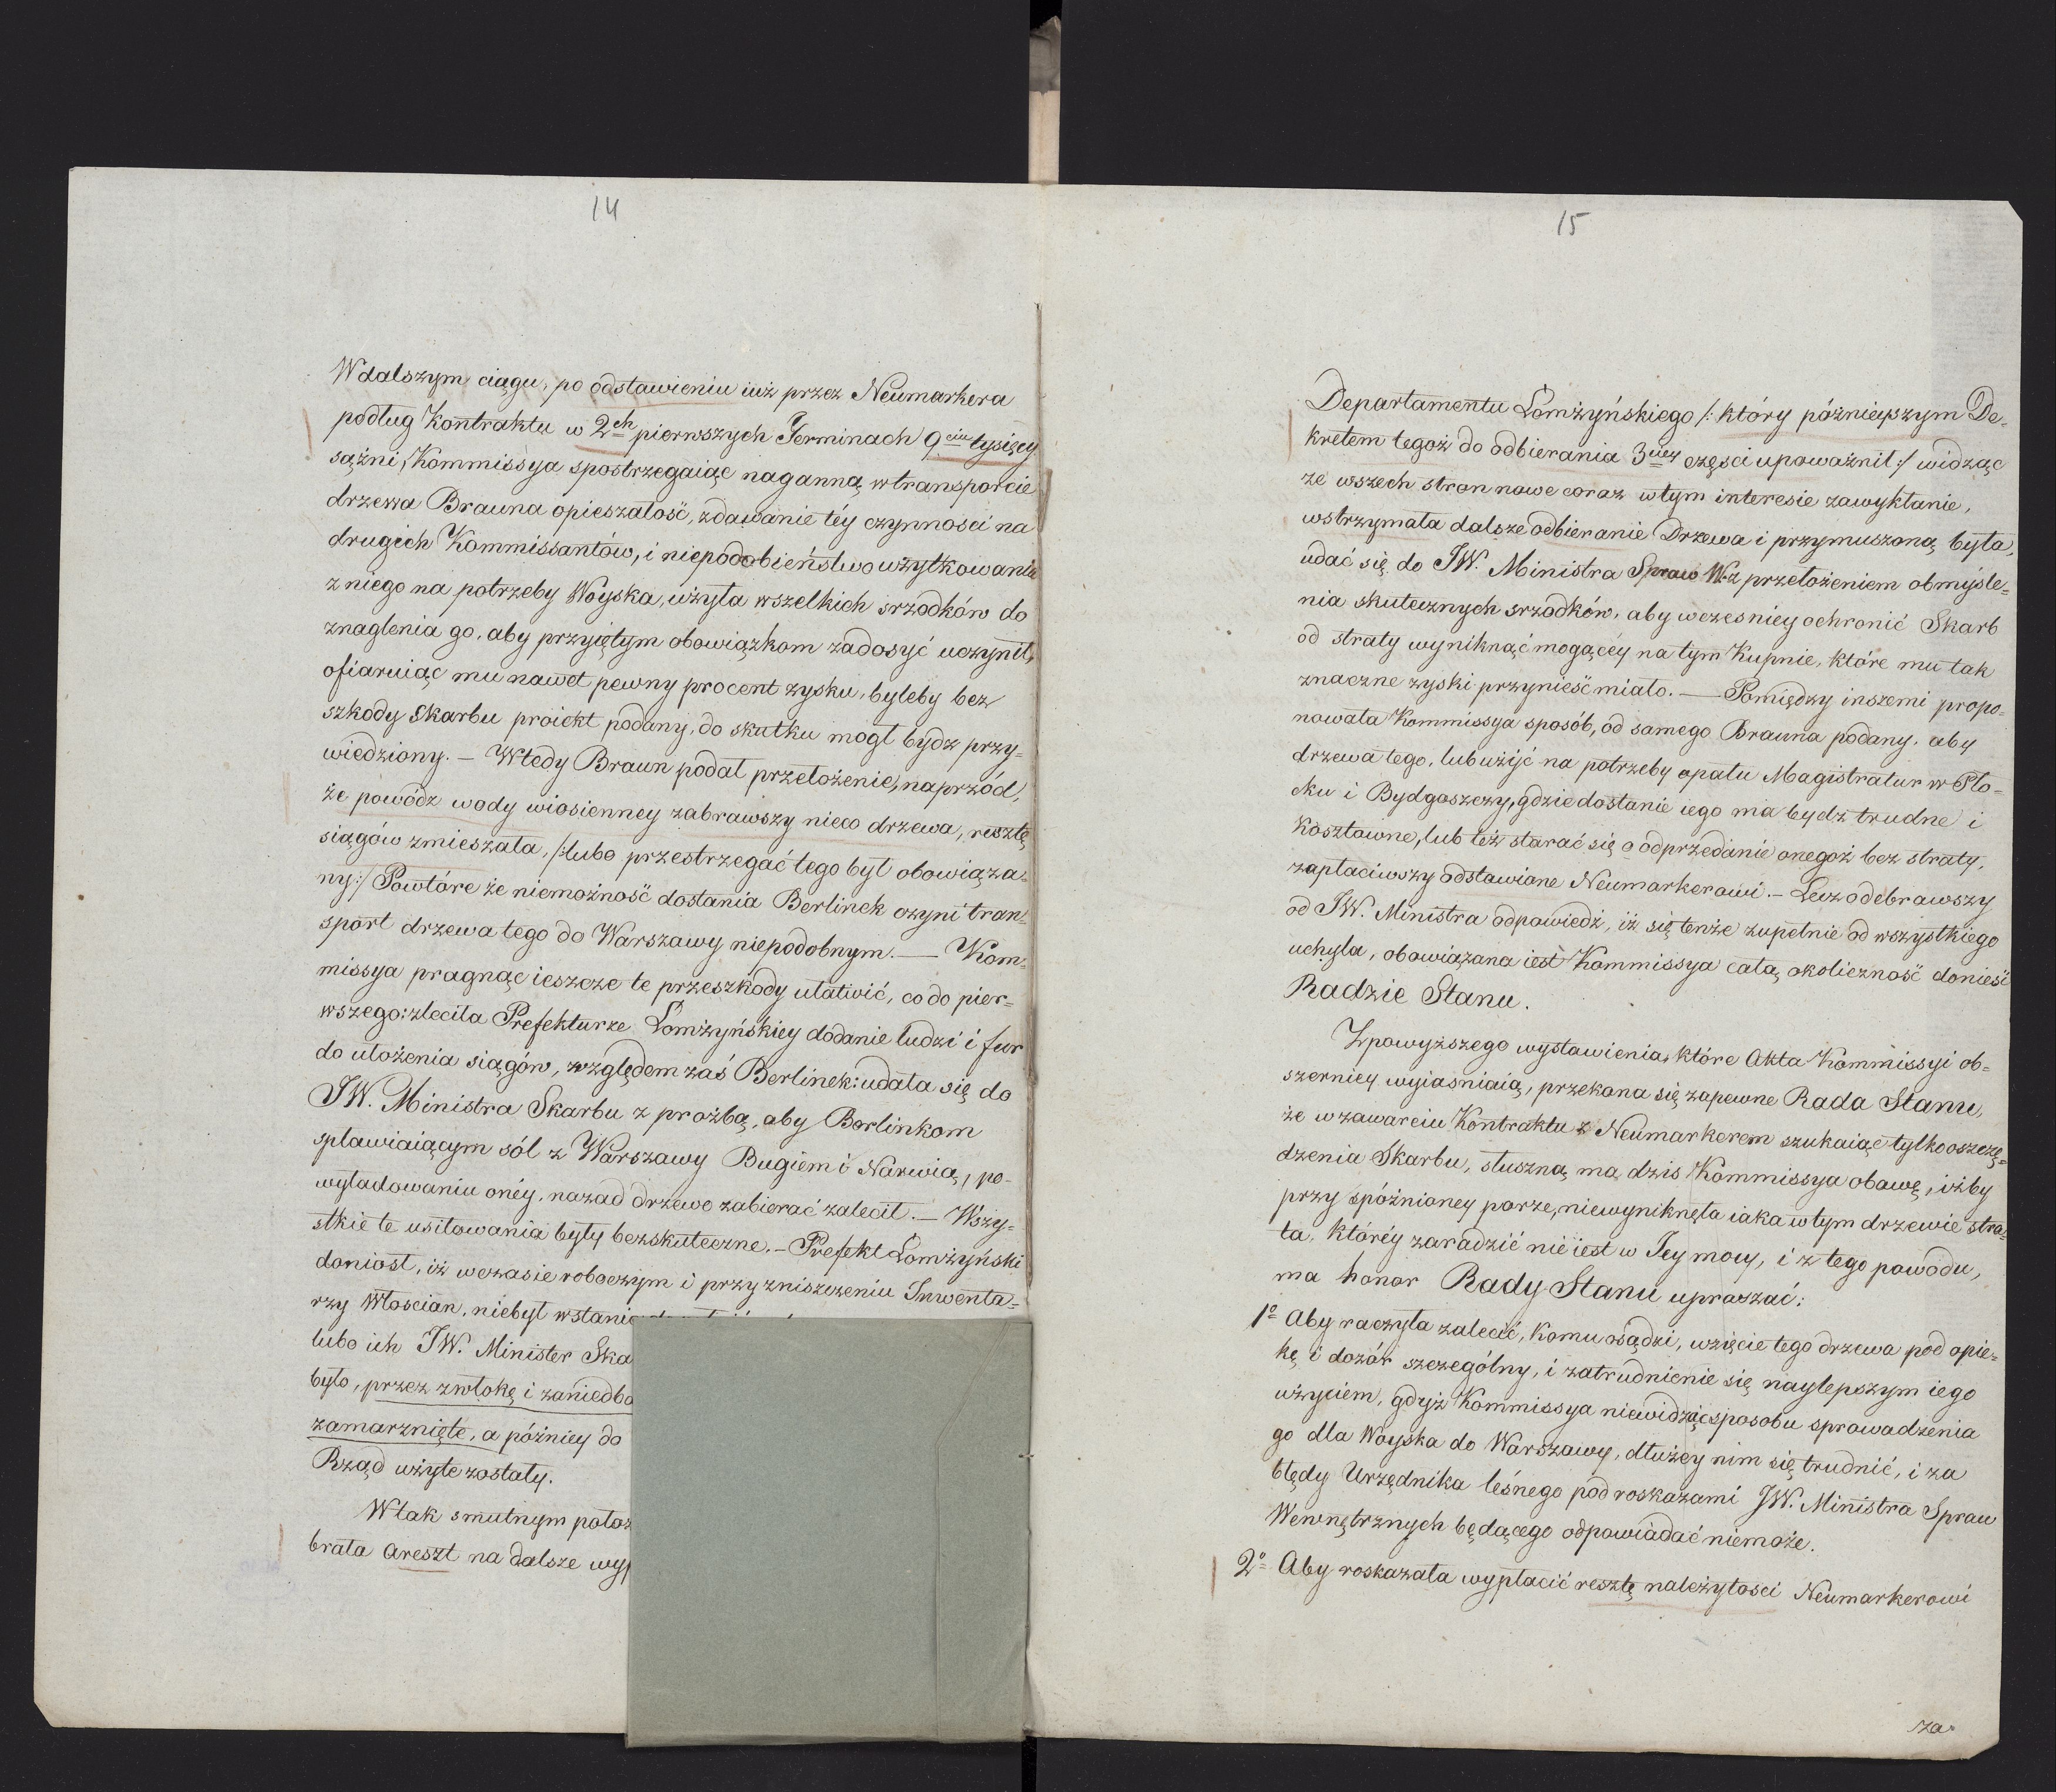 14
Wdalszym ciągu, po odstawieniu iuż przez Neumarkera
podług Kontraktu w 2ch pierwszych Terminach 9ciu tysięcy
sążni, Kommissya spostrzegaiąc naganną w transporcie
drzewa Brauna opieszałość, zdawanie téy czynnosci na
drugich Kommissantów, i niepodobieństwo użytkowania
z niego na potrzeby Woyska, użyła wszelkich srzodków do
znaglenia go, aby przyiętym obowiązkom zadosyć uczynił,
ofiaruiąc mu nawet pewny procent zysku, byleby bez
szkody Skarbu proiekt podany, do skutku mogł bydz przy=
wiedziony. — Wtedy Braun podał przełożenie, naprzód,
że powódz wody wiosienney zabrawszy nieco drzewa, resztę
siągów zmieszała, /:lubo przestrzegać tego był obowiąza=
ny:/ Powtóre że niemożność dostania Berlinek czyni tran=
sport drzewa tego do Warszawy niepodobnym. — Kom=
missya pragnąc ieszcze te przeszkody ułatwić, co do pier=
wszego: zleciła Prefekturze Łomżyńskiey dodanie ludzi i fur
do ułożenia siągów, względem zaś Berlinek: udała się do
JW. Ministra Skarbu z prożbą, aby Berlinkom
spławiaiącym sól z Warszawy Bugiem i Narwią, po=
wyładowaniu onéy, nazad drzewo zabierać zalecił. — Wszy=
stkie te usiłowania były bezskuteczne. — Prefekt Łomżyński
doniosł, iż wczasie roboczym i przy zniszczeniu Inwenta=
rzy Włoscian, niebył wstanie
lubo ich JW. Minister Ska
było, przez zwłokę i zaniedba
zamarznięte, a późniey do
Rząd użyte zostały.
Wtak smutnym położ
brała areszt na dalsze wyp
15
Departamentu Łomżyńskiego /: który późnieyszym De=
kretem tegoż do odbierania 3ciey częsci upoważnił :/ widząc
ze wszech stron nowe coraz w tym interesie zawykłanie,
wstrzymała dalsze odbieranie Drzewa i przymuszoną była,
udać się do JW. Ministra Spraw W. z przełożeniem obmysle=
nia skutecznych srzodków, aby wczesniey ochronić Skarb
od straty wyniknąć mogącéy na tym Kupnie, które mu tak
znaczne zyski przynieść miało. — Pomiędzy inszemi propo=
nowała Kommissya sposób, od samego Brauna podany, aby
drzewa tego, lub użyć na potrzeby opału Magistratur w Pło=
cku i Bydgoszczy, gdzie dostanie iego ma bydz trudne i
kosztowne, lub też starać się o odprzedanie onegoż bez straty,
zapłaciwszy odstawione Neumarkerowi. — Lecz odebrawszy
od JW. Ministra odpowiedź, iż się tenże zupełnie od wszystkiego
uchyla, obowiązana iest Kommissya całą okoliczność donieść
Radzie Stanu.
Zpowyższego wystawienia, które Akta Kommissyi ob=
szerniey wyiasniaią, przekona się zapewne Rada Stanu,
że w zawarciu Kontraktu z Neumarkerem szukaiąc tylko oszczę=
dzenia Skarbu, słuszną ma dzis Kommissya obawę, iżby
przy spóźnioney porze, niewyniknęła iaka w tym drzewie stra=
ta, któréy zaradzić nie iest w Jey mocy, i z tego powodu,
ma honor Rady Stanu upraszać:
1o Aby raczyła zalecić, komu osądzi, wzięcie tego drzewa pod opie=
kę i dozór szczególny, i zatrudnienie się naylepszym iego
użyciem, gdyż Kommissya niewidząc sposobu sprowadzenia
go dla Woyska do Warszawy, dłużey nim się trudnić, i za
błędy Urzędnika leśnego pod roskazami JW. Ministra Spraw
Wewnętrznych będącego odpowiadać niemoże.
2o Aby roskazała wypłacić resztę należytosci Neumarkerowi
za